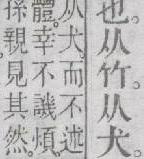 也。从竹。从犬。
从犬。而不述
體。幸不譏煩。
孫親見其然。